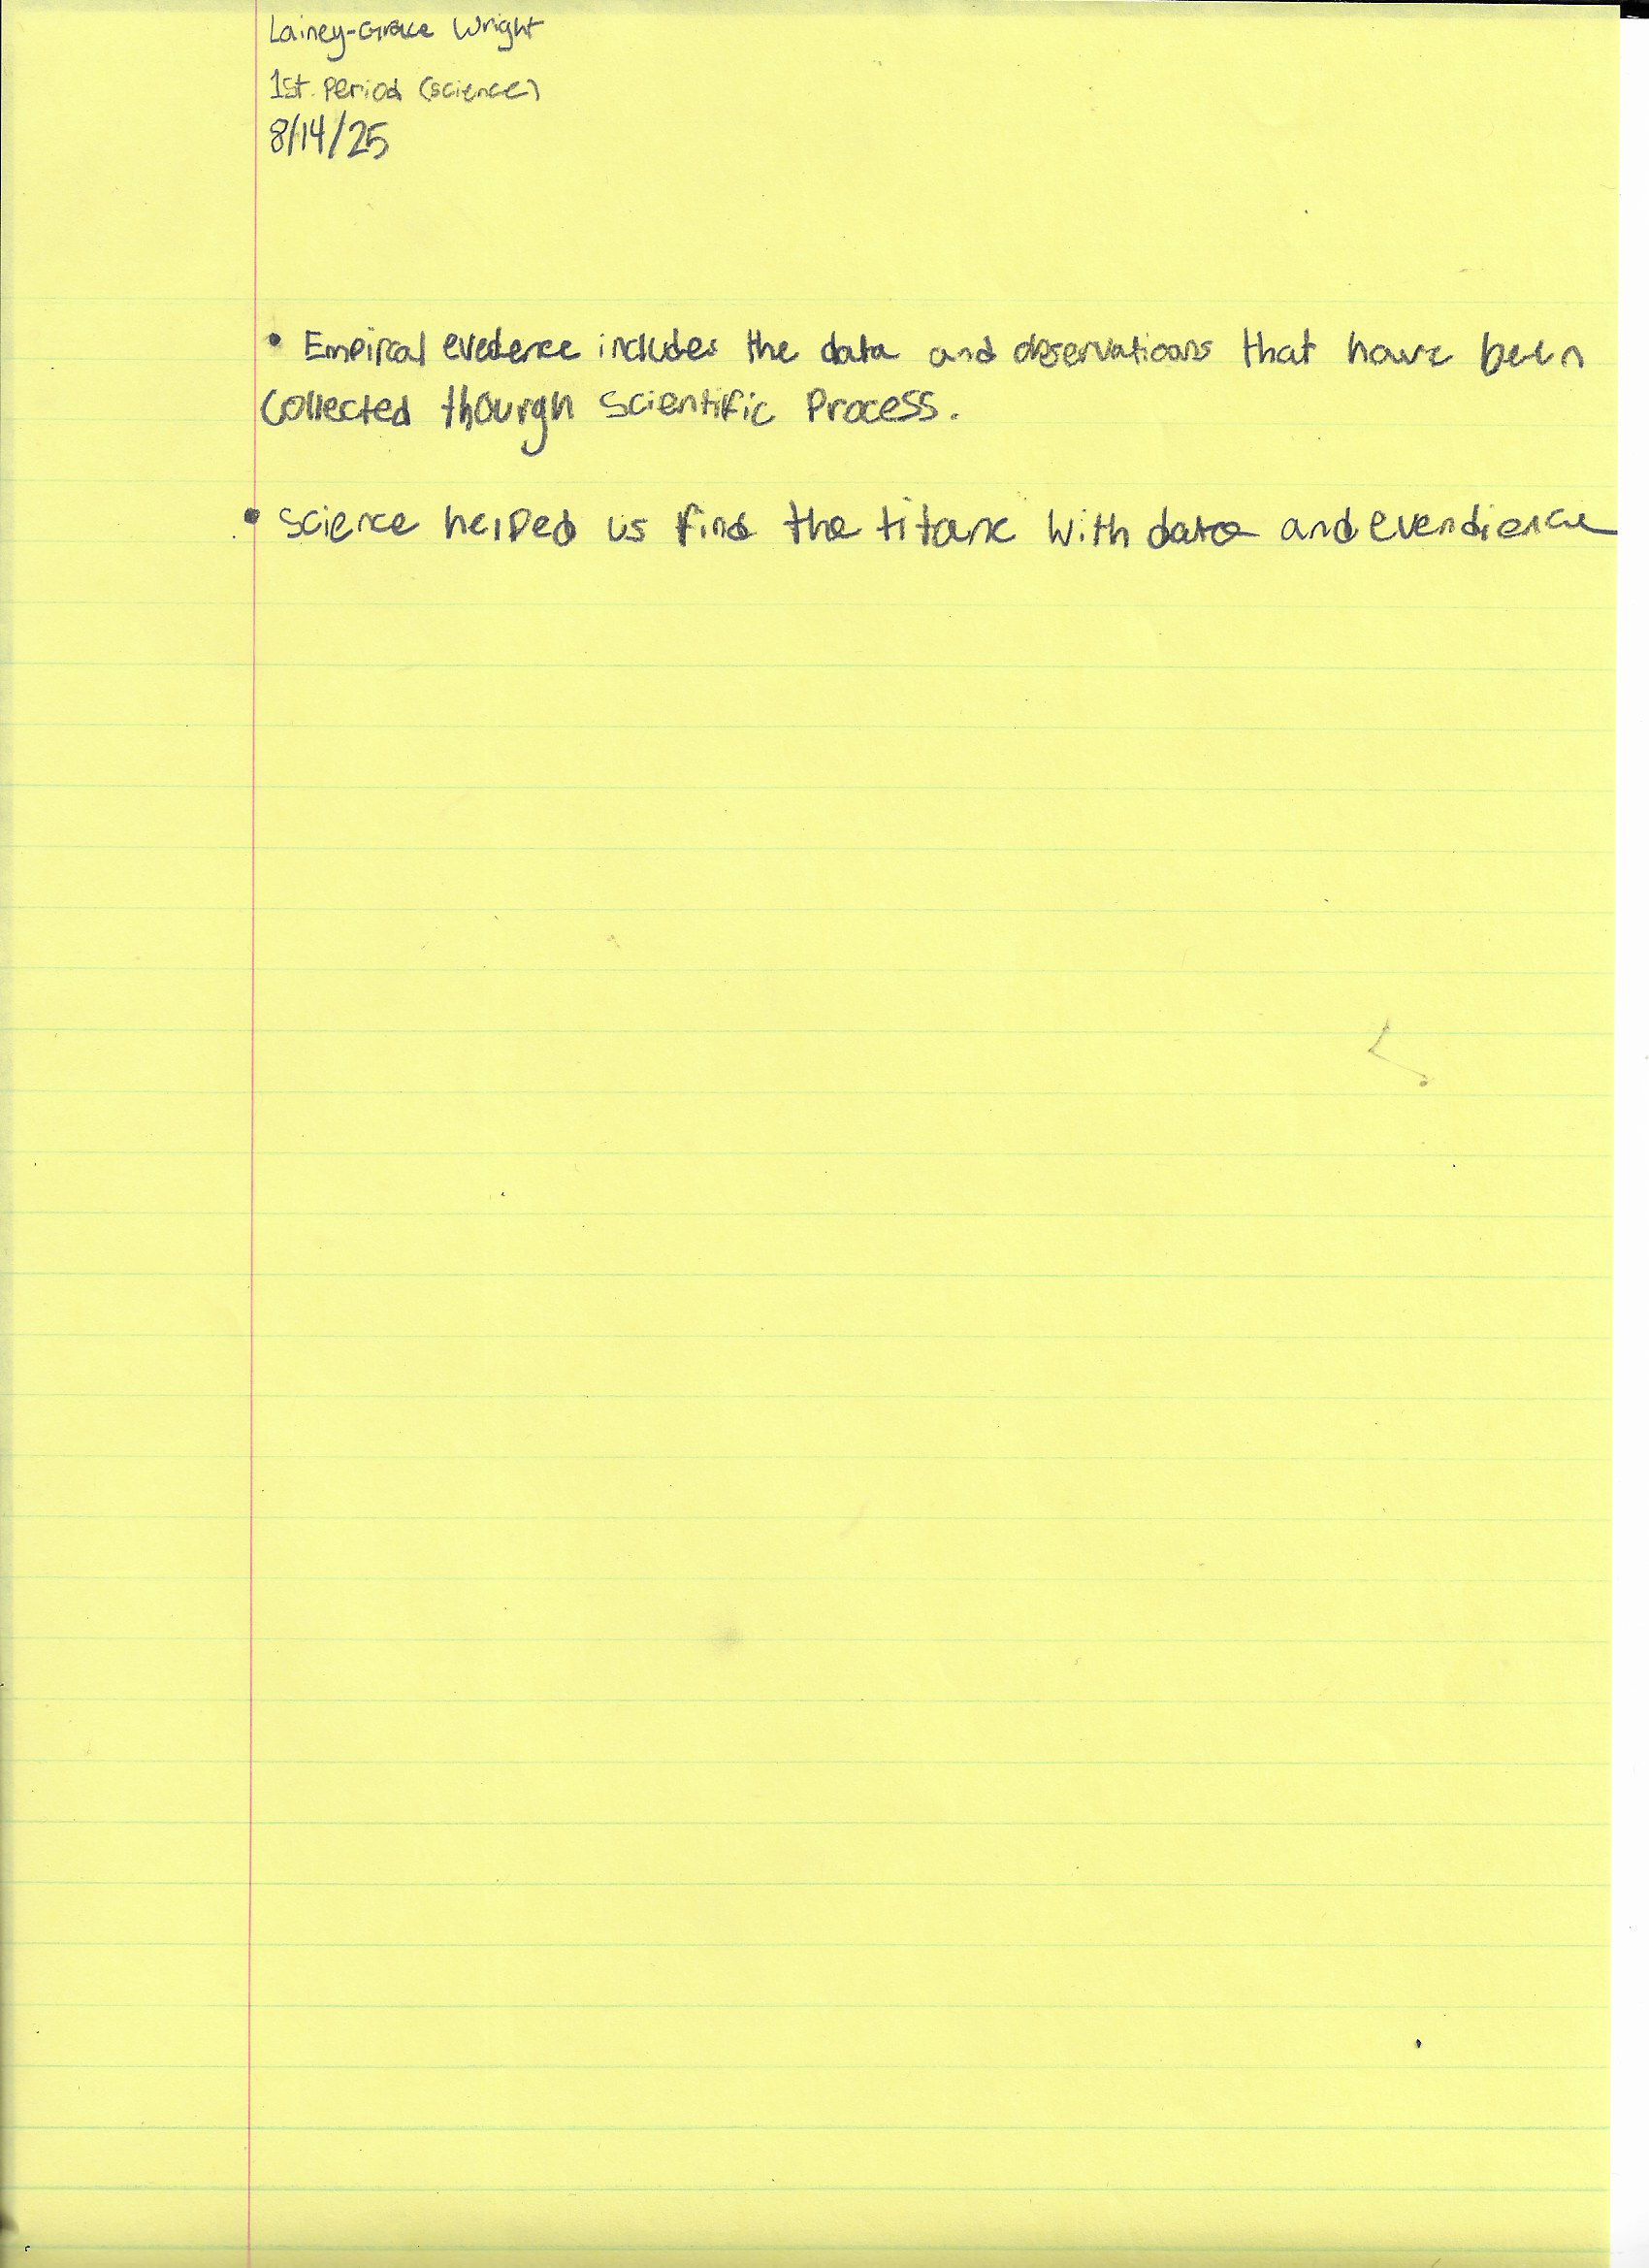 Lainey-Grace Wright
1st. Period (science)
8/14/25
• Empircal evedence includes the data and observatioans that have been
collected thourgh Scientific Process.
• Science helped us find the titanc with data and evendience